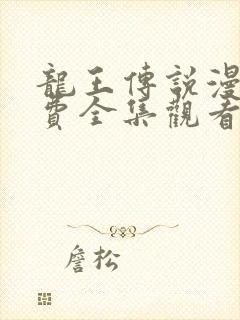 龍王傳說漫
費全集觀看
詹松